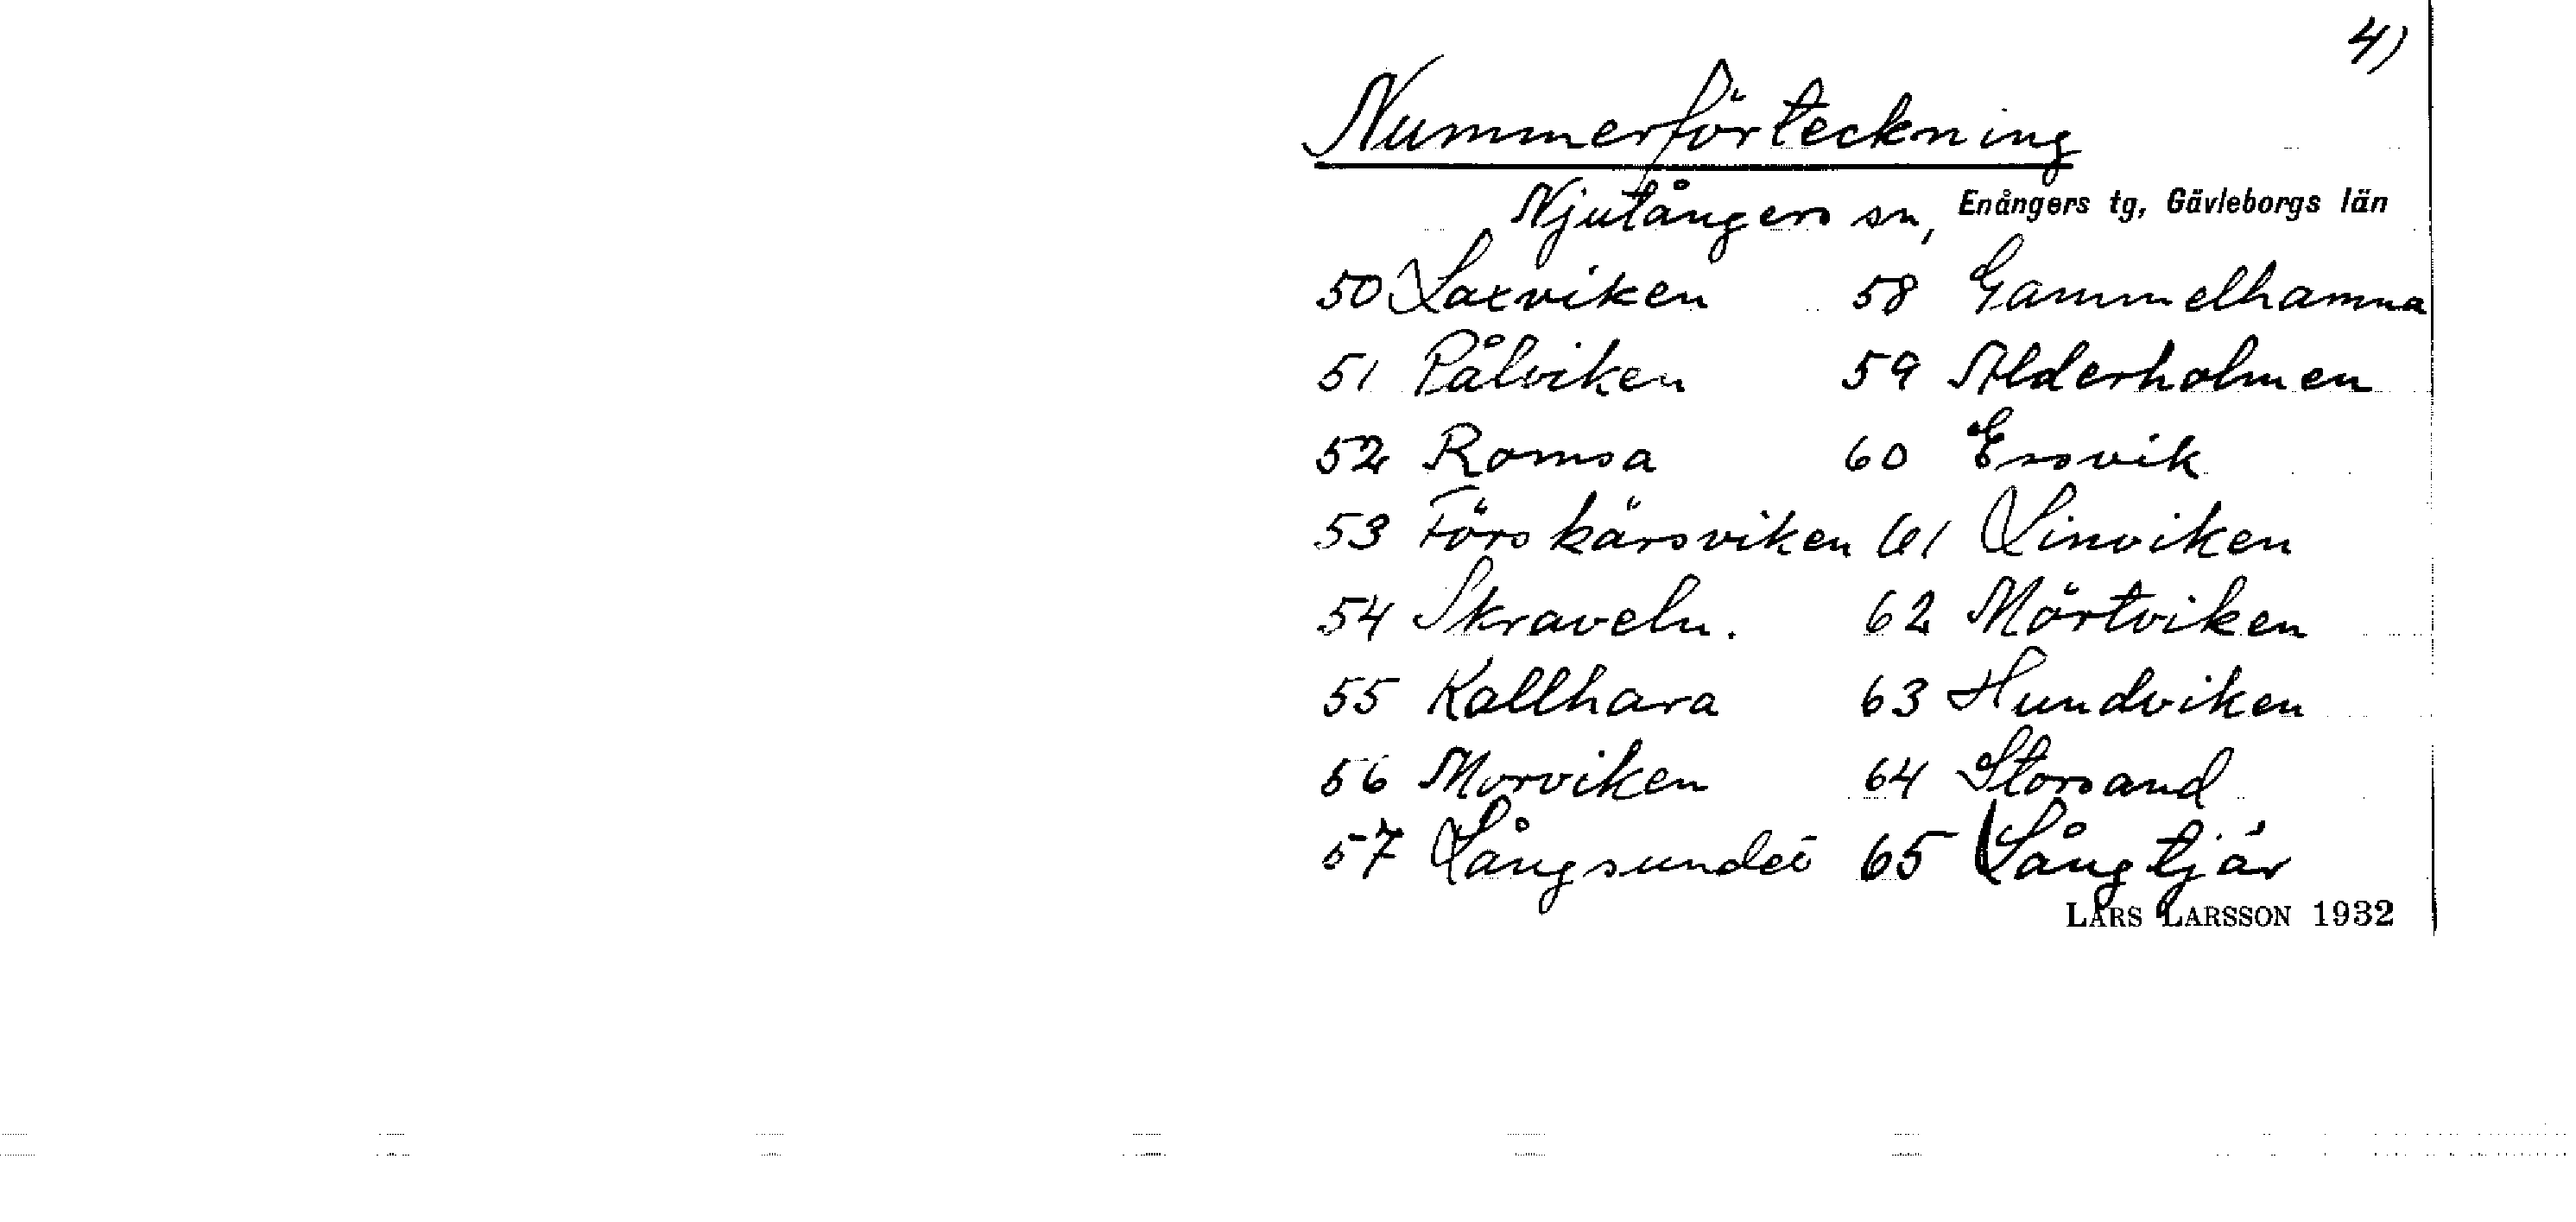 4)
Nummerförteckning
Njutångers sn, Enångers tg, Gävleborgs län
50 Laxviken 58 Gammelhamna
51 Pålviken 59 Alderholmen
52 Romsa 60 Ersvik
53 Förskärsviken 61 Linviken
54 Skraveln. 62 Mörtviken
55 Kallhara 63 Hundviken
56 Morviken 64 Storsand
57 65 Långtjär
LARS LARSSON 1932